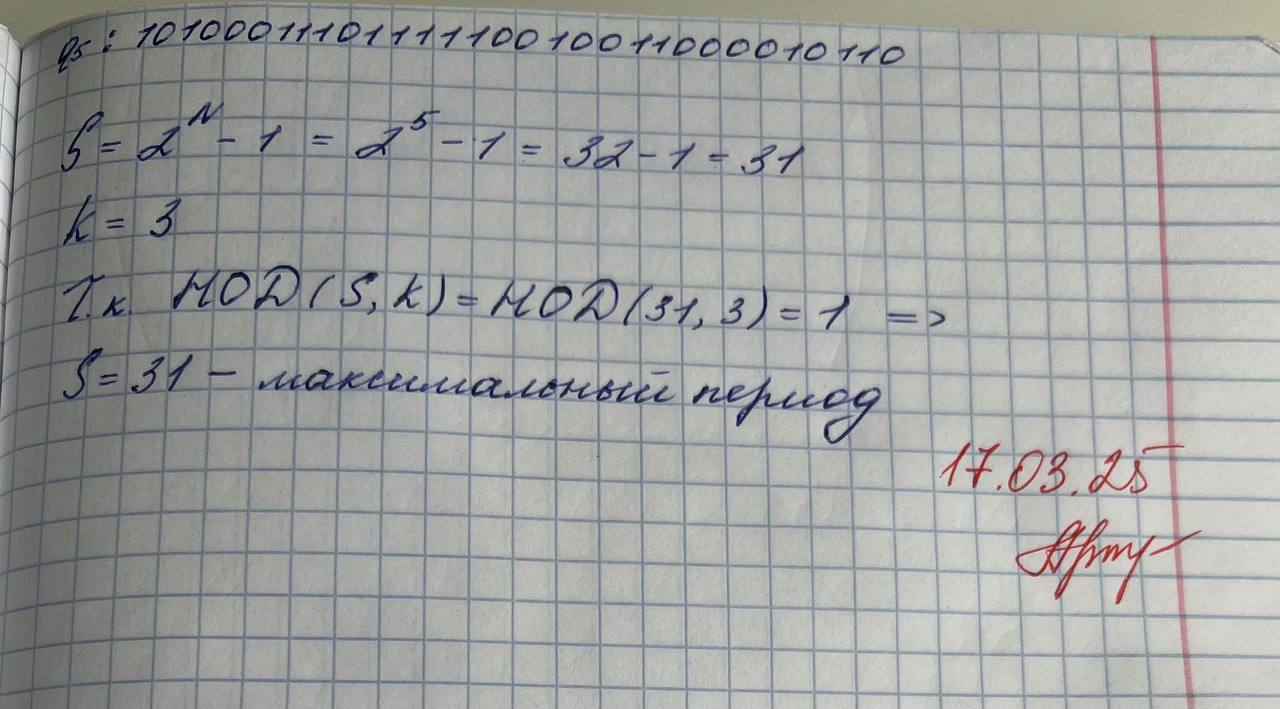 q₅: 1010001110111110010011000010110
S = 2ᴺ - 1 = 2⁵ - 1 = 32 - 1 = 31
k = 3
Т.к. НОД (S, k) = НОД (31, 3) = 1 =>
S = 31 – максимальный период
17.03.25